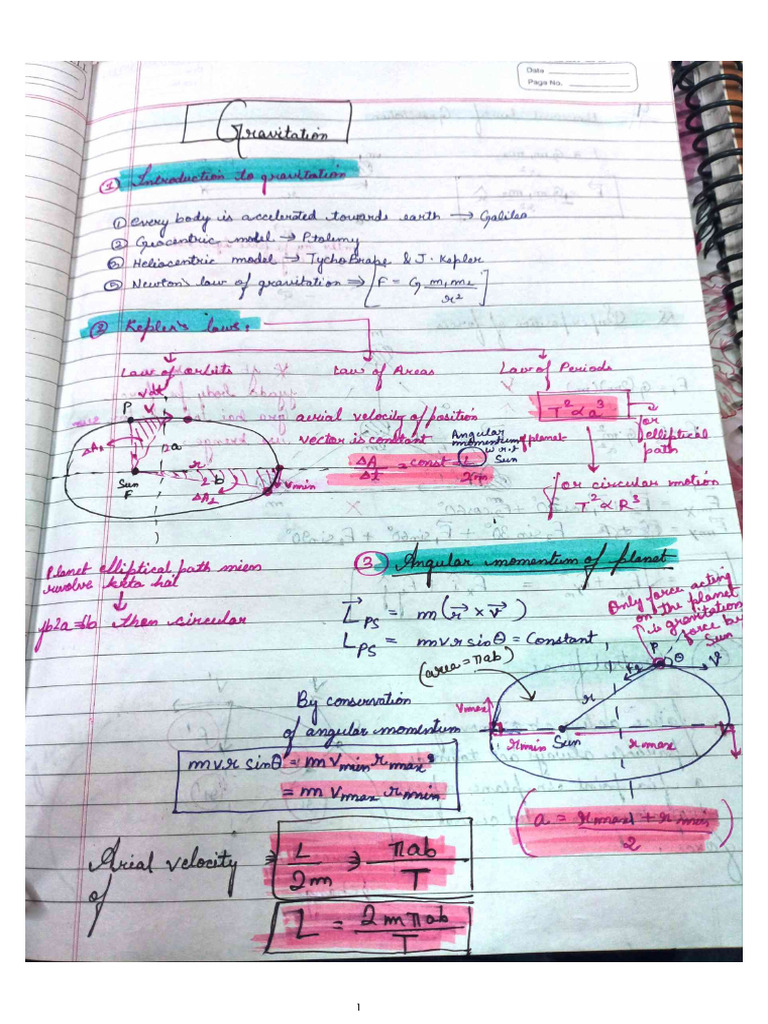 Date
Page No.
Gravitation
① Introduction to gravitation
① Every body is accelerated towards earth → Galileo
② Geocentric model → Ptolemy
③ Heliocentric model → Tycho Brape & J. Kepler
⑤ Newton's law of gravitation ⇒ [F = G m₁m₂/r²]
② Kepler's laws:
Law of orbits Law of Areas Law of Periods
T² ∝ a³
for elliptical path
aerial velocity of position
vector is constant
ΔA/Δt = const = L/2m
Angular momentum of planet w.r.t Sun
for circular motion
T² ∝ R³
vdt
V
P
ΔA₂
a
r
b
ΔA₁
Vmin
Sun
F
Planet elliptical path mien
revolve keta hai
then circular
③ Angular momentum of planet
L⃗PS = m(r⃗ × v⃗)
LPS = mvr sinθ = Constant
(area = πab)
Only force acting
on the planet
is gravitation
force by
Sun
P
θ
V
r
Vmax
rmin
Sun
rmax
By conservation
of angular momentum
mvr sinθ = m vmin rmax
= m vmax rmin
(a = rmax + rmin / 2)
Arial velocity ⇒ L/2m ⇒ πab/T
of
L = 2mπab/T
1